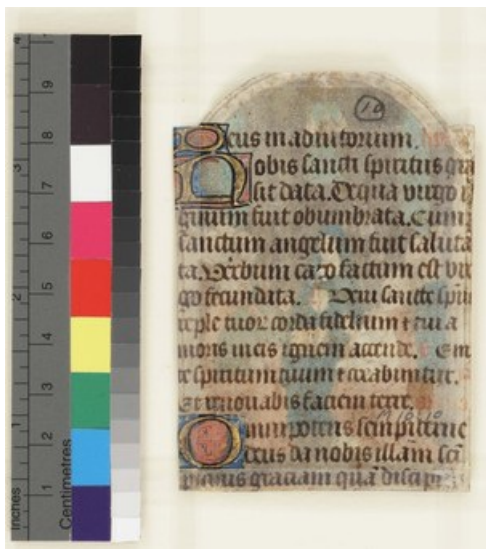 10
Deus in adiutorium.
Nobis sancti spiritus gra
sit data. De qua virgo i
ginum fuit obumbrata. Cum
sanctum angelum fuit saluta
ta. Verbum caro factum est vir
go fecundata. Veni sancte spiri
reple tuor corda fidelium et tui a
moris in eis ignem accende. Em
te spiritum tuum et creabuntur.
Et renovabis faciem terre.
Omnipotens sempiterne
deus da nobis illam scam
spiritus gratiam qua discipu
Inches
1
2
3
4
Centimetres
1
2
3
4
5
6
7
8
9